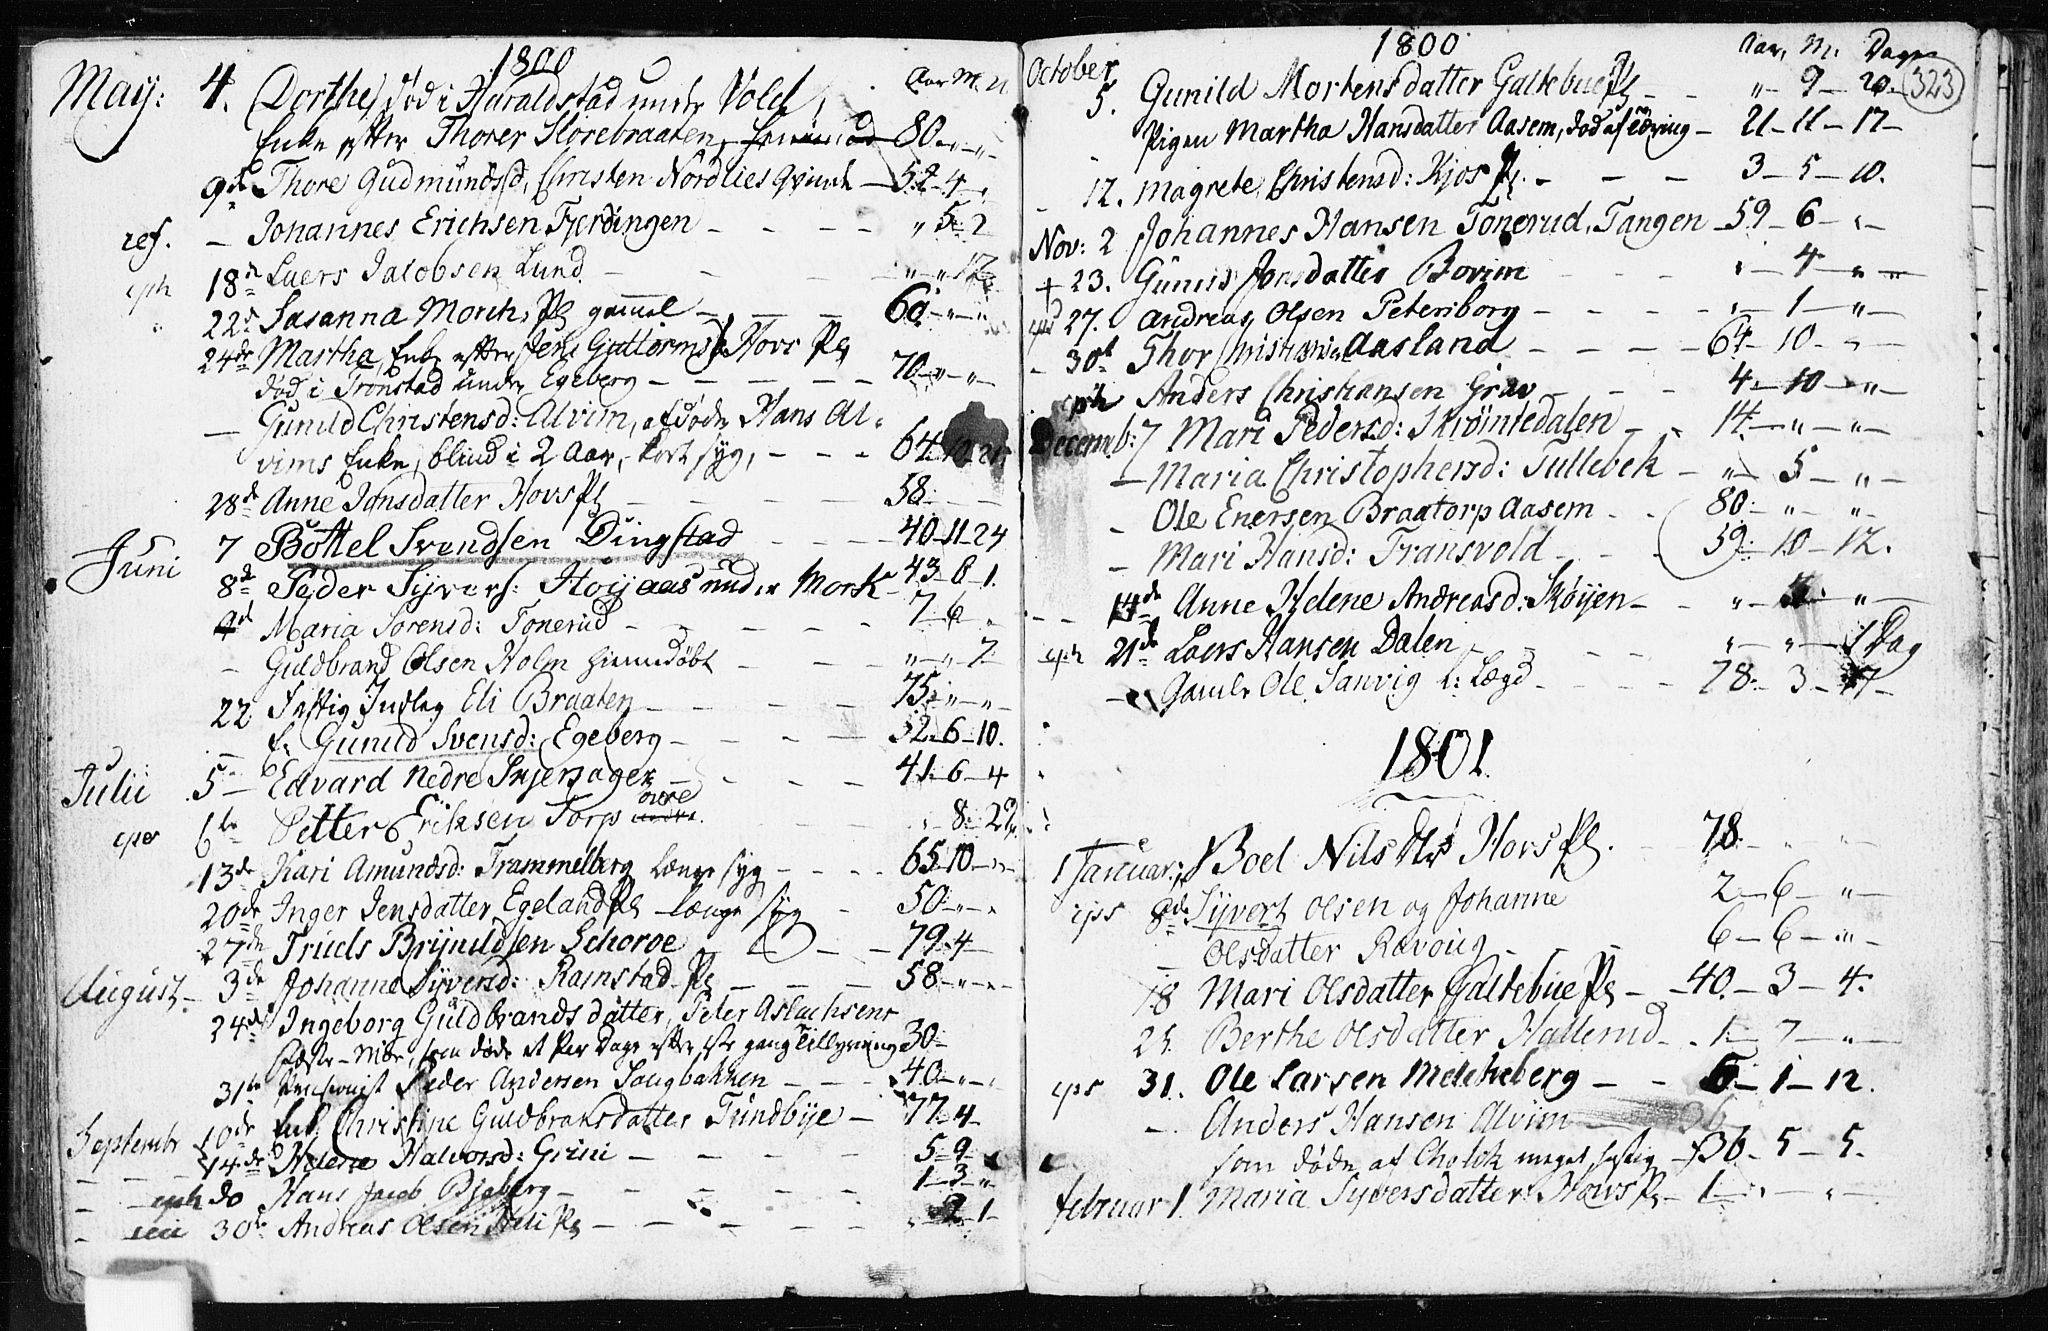 1800
Aar M. U
May: 4. (Dorthe) død i Haraldstad under Vold,
Enke efter Thorer Slorebraaten, 80 - " - "
9de Thore Gudmundsd, Christen Nordlies Qvinde - 52 - 4 - "
ref. - Johannes Erichsen Fjerdingen - - - - " 5 - 2
eph 18de Laers Jacobsen Lund - - - " " 12
" 22de Susanna Monch, Pl gammel - - - 60 - " - "
24de Martha, Enke efter Jens Guttormsd Hovs Pl
død i Tronstad under Egeberg - - - - - 70 - " - "
- Gunild Christensd: Alvim, afdøde Hans Al-
vims Enke, blind i 2 Aar, kort syg, - - - 64 - 10 - 21
28de Anne Jonsdatter Hovs Pl - - - - 58 - - -
Juni 7 Bottel Svendsen Dingstad - - - - 40 - 11 - 24
8de Peder Syvers: Hoijaas under Mork - 43 - 6 - 1.
9d Maria Sorensd: Tonerud - - - - - 7 - 6 - "
- Guldbrand Olsen Holm hiemmedøbt - - - " - " - 7 -
22 Fattig Indleg Eli Braaten - - - - 75 - " - "
- f: Gunild Svensd: Egeberg - - - - 32 - 6 - 10.
Julii 5 - Edvard nedre Skjersager - - - - 41 - 6 - 4
øvre
eps 6te Petter Eriksen Torp nedre. " 8 - 2
13de Kari Amundsd: Trammelberg længe syg - - - - 65 - 10 - "
20de Inger Jensdatter Egeland Pl længe syg - 50 - " - "
27de Truels Brynildsen Schoroe - - - 79 - 4 -
August - 3de Johanne Syversd: Ramstad Pl - - - 58 - " - "
24de Ingeborg Guldbrandsdatter, Peter Aslachsens
Fæste-Møe, som døde et Par Dage efter første gang Tillysning 30 -
31te Pensionist Peder Andersen Haugbakken - - - 40 - " - "
Septembr 10de Enke Christine Guldbransdatter Tundbye - 77 - 4 -
14de Helene Halvorsd: Grini - - - - - 5 - 9 -
- eph do Hans Jacob Bjaberg - - - - - 1 - 3 - "
- 30te Andreas Olsen Heli Pl - - - - - " - 2 - 1 -
1800
Aar, M. Dage
323
October
5. Gunild Mortensdatter Galtebue Pl - - " - 9 - 20 -
Pigen Martha Hansdatter Aasem, død af Tæring - 21 - 11 - 17 -
- 12. Magrete Christensd: Kjos Pl. - - - 3 - 5 - 10.
Nov: 2 Johannes Hansen Tonerud, Tangen - 59 - 6 - " -
+ 23. Gunild Jonsdatter Bovim - - - " - 4 - " - " -
27. Andreas Olsen Petersborg - - - - " - 1 - " -
- 30te Thor Christiansen Aasland - - - - 64 - 10 - " -
eph Anders Christiansen Grav - - - - 4 - 10 - " -
Decemb: 7 Mari Pedersd: Skrøintedalen - - 14 - " - " -
- Maria Christophersd: Tullebek - " - 5 - " -
- Ole Enersen Braatorp Aasem - - 80 - " - " -
- Mari Hansd: Fransvold - - - 59 - 10 - 12.
- - 14de Anne Helene Andreasd: Skøyen - - " - - " -
eph 21de Laers Hansen Dalen - - - " - " - 1 Dag
- Gamle Ole Sanvig L: Lægd - - - - 78 - 3 - 17 -
1801.
1 Januar: Boel Nils Dtr Hovs Pl. - 78 - " - "
eps 8de Syvert Olsen og Johanne 2 - 6 - " -
- Olsdatter Ravoug - - 6 - 6 - " -
18 Mari Olsdatter Galtebue Pl - - 40 - 3 - 4.
25. Berthe Olsdatter Hallerud - - 1 - 7 - " -
eps 31. Ole Larsen Melcheberg - - 6 - 1 - 12.
- Anders Hansen Alvim 36
som døde af Cholik meget hastig - 36 - 5 - 5.
Februar 1. Maria Syversdatter Howis Pl - 1 - " - " -